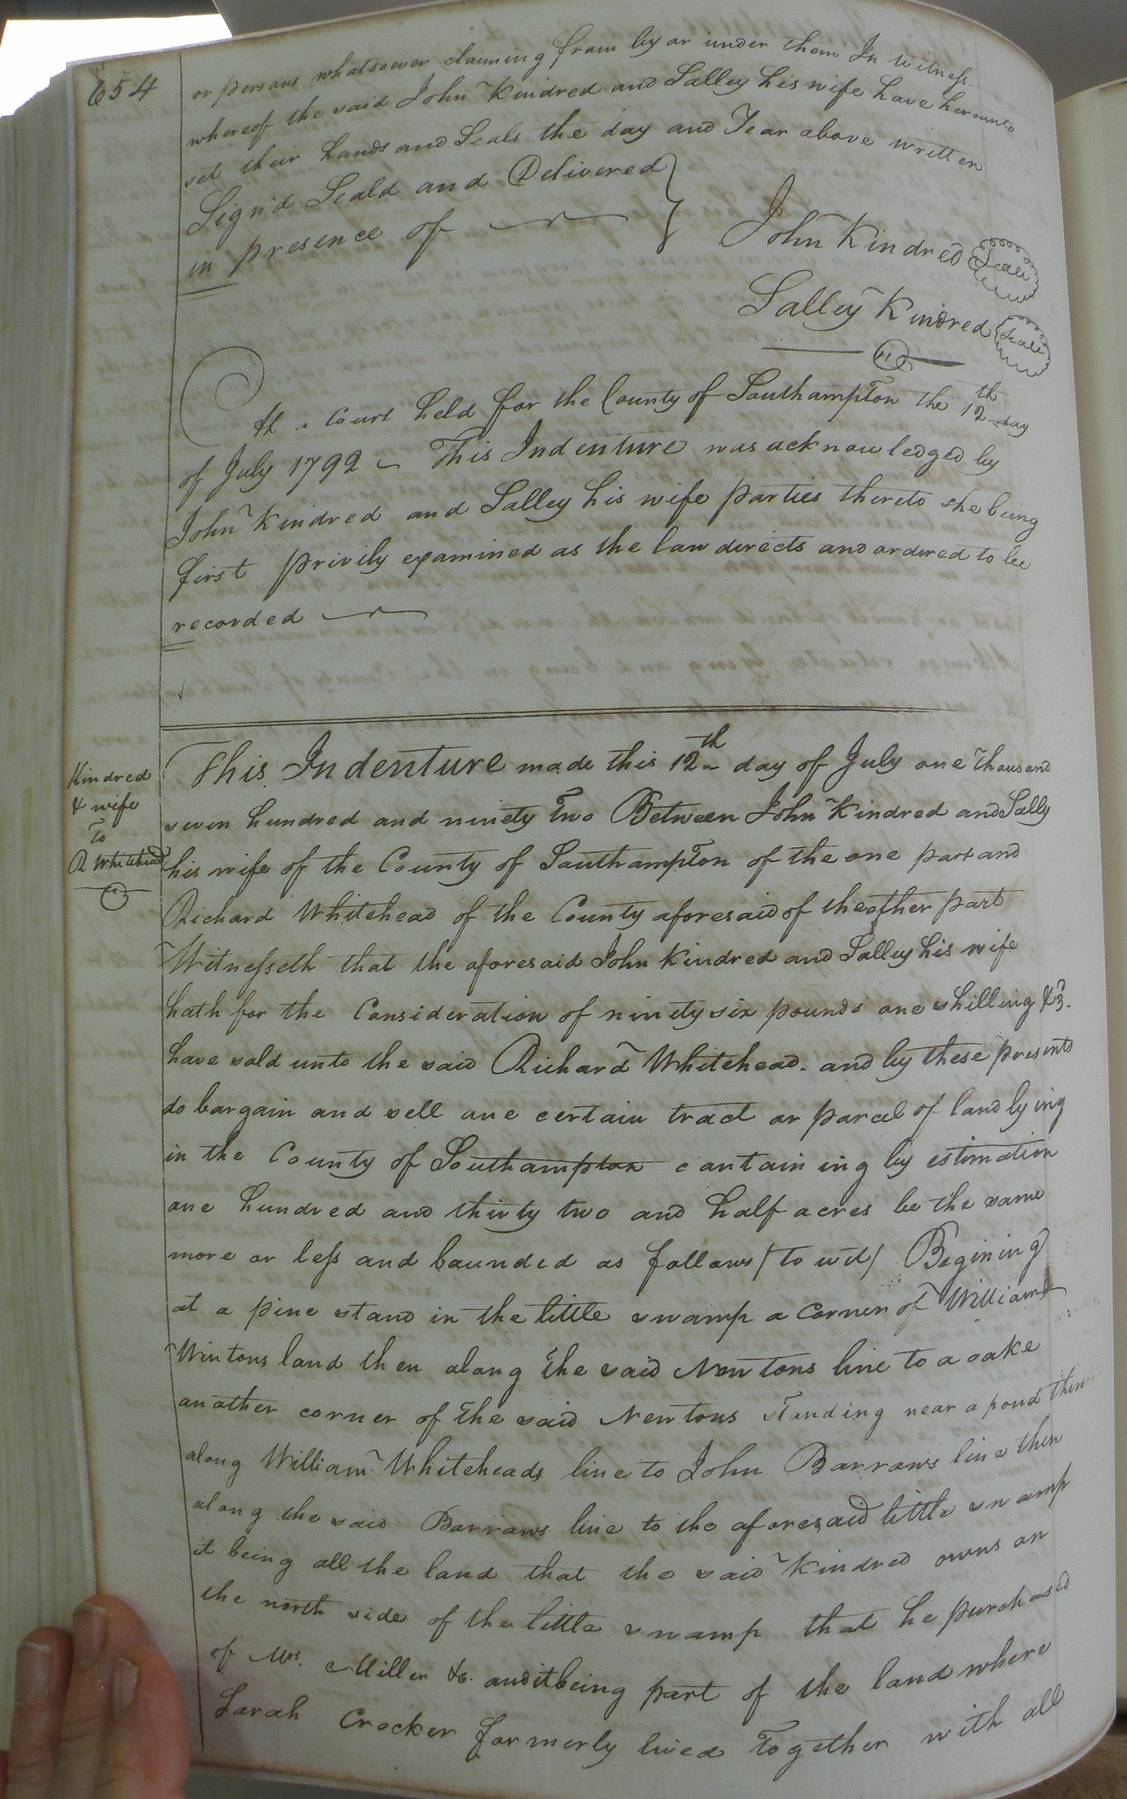 654
or persons whatsoever claiming from by or under them In witness
whereof the said John Kindred and Salley his wife have hereunto
set their hands and Seals the day and Year above written
Sign'd Seald and Delivered }
in presence of
John Kindred Seal
Salley Kindred Seal
At a Court held for the County of Southampton the 12th day
of July 1792 This Indenture was acknowledged by
John Kindred and Salley his wife parties thereto she being
first privily examined as the law directs and ordered to be
recorded
Kindred
& wife
To
R Whitehead
This Indenture made this 12th day of July one thousand
seven hundred and ninety Two Between John Kindred and Sally
his wife of the County of Southampton of the one part and
Richard Whitehead of the County aforesaid of the other part
Witnesseth that the aforesaid John Kindred and Salley his wife
hath for the Consideration of ninety six pounds one shilling & 3.
have sold unto the said Richard Whitehead. and by these presents
do bargain and sell one certain tract or parcel of land lying
in the County of Southampton containing by estimation
one hundred and thirty two and half acres be the same
more or less and bounded as follows (to wit) Begining
at a pine stand in the little swamp a corner of William
Wintons land then along the said Newtons line to a oake
another corner of the said Newtons standing near a pond then
along William Whiteheads line to John Barrows line then
along the said Barrows line to the aforesaid little swamp
it being all the land that the said Kindred owns on
the north side of the little swamp that he purchased
of Mrs. Miller &c. and it being part of the land where
Sarah Crocker formerly lived Together with all